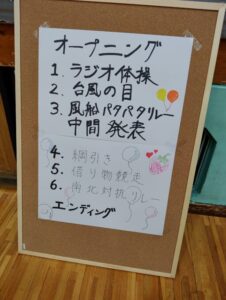 オープニング
1. ラジオ体操
2. 台風の目
3. 風船パタパタリレー
中間発表
4. 綱引き
5. 借り物競走
6. 南北対抗リレー
エンディング